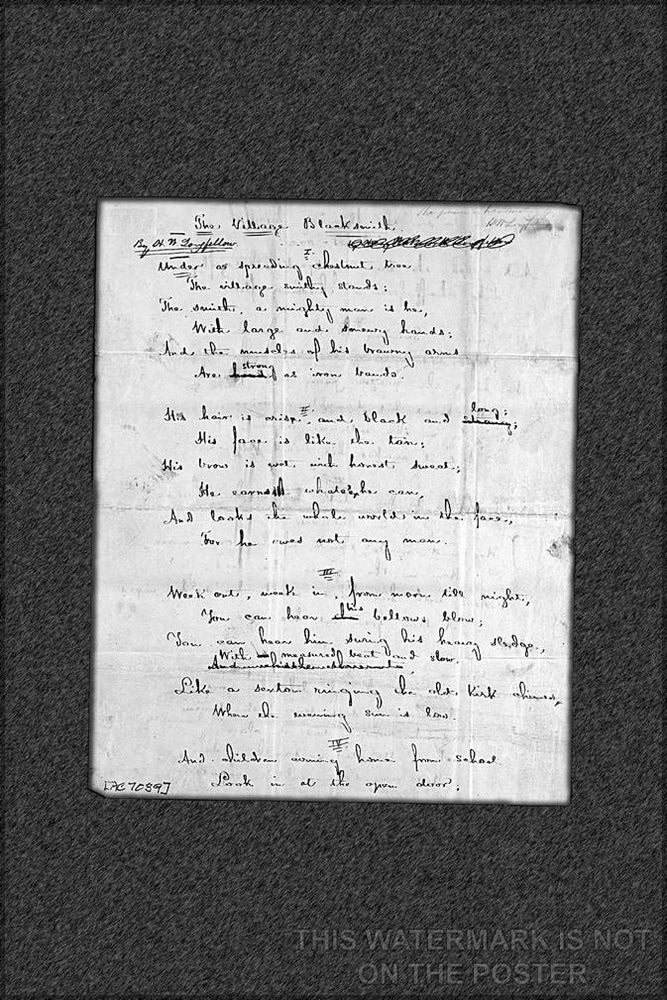 The Village Blacksmith.
By H. W. Longfellow
I.
Under a spreading chestnut tree
The village smithy stands;
The smith, a mighty man is he,
With large and sinewy hands;
And the muscles of his brawny arms
Are strong as iron bands.
II.
His hair is crisp, and black and long;
His face is like the tan;
His brow is wet with honest sweat;
He earns whate'er he can,
And looks the whole world in the face,
For he owes not any man.
III
Week out, week in, from morn till night,
You can hear his bellows blow;
You can hear him swing his heavy sledge,
With measured beat and slow.
Like a sexton ringing the old kirk chimes,
When the evening sun is low.
IV
And children coming home from school
Look in at the open door;
[AC7089]
THIS WATERMARK IS NOT
ON THE POSTER